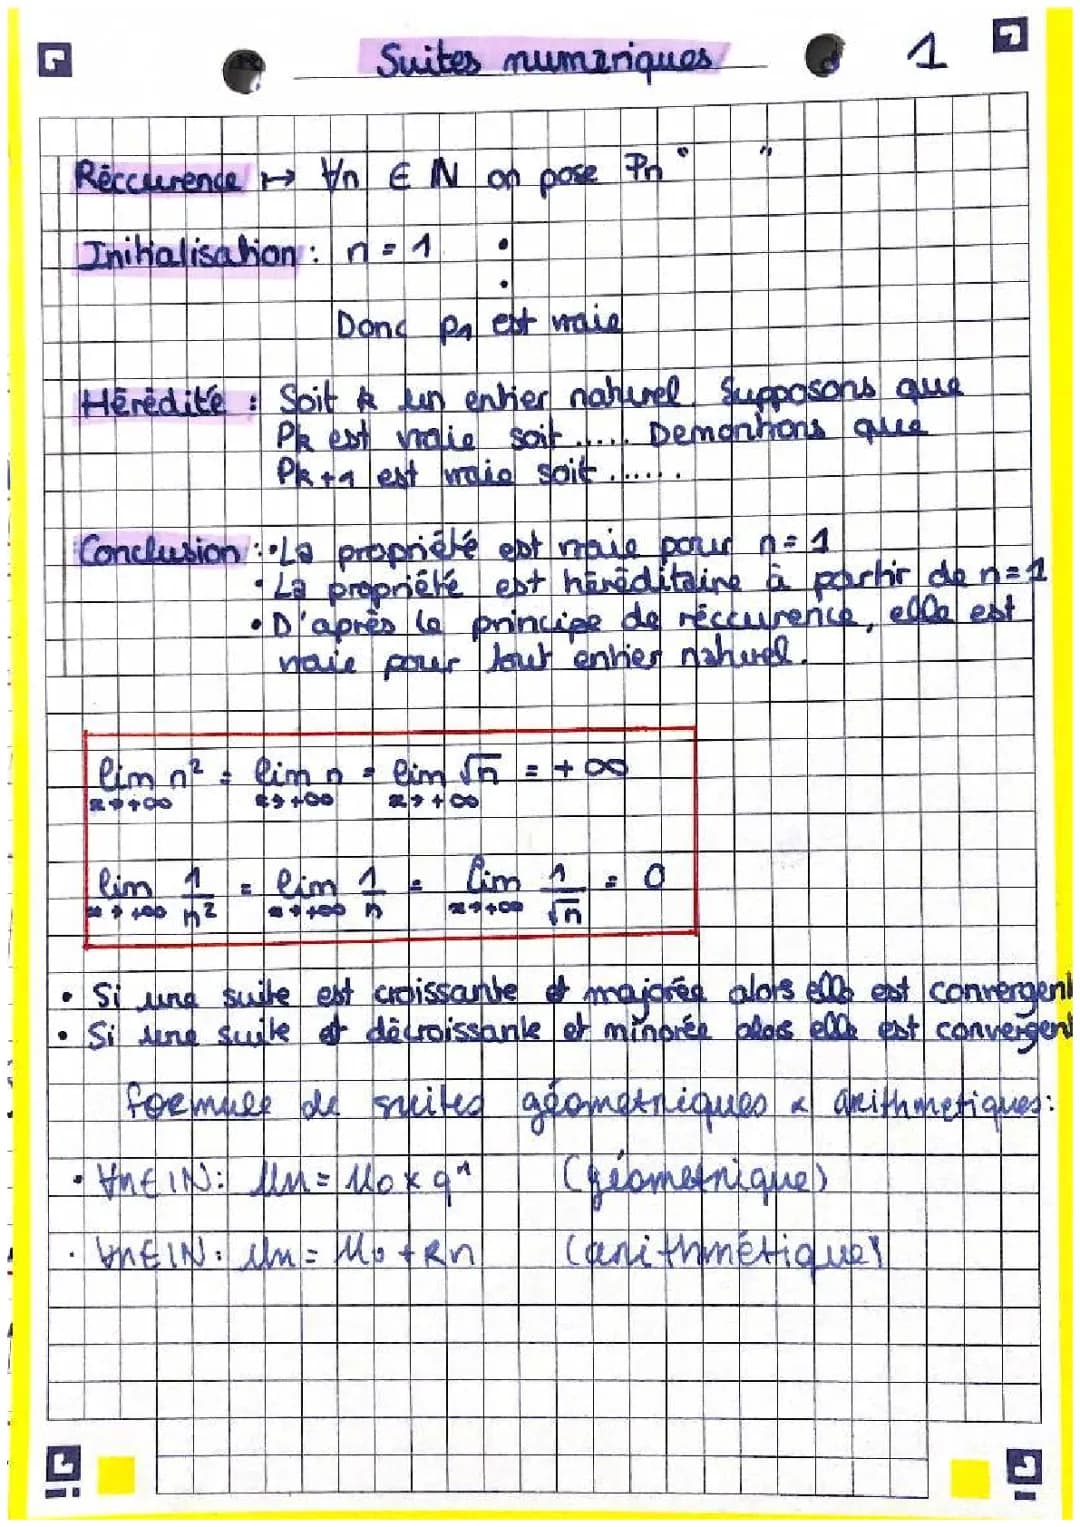 Suites numériques 1
Réccurence ↦ ∀n ∈ ℕ on pose Pn " "
Initialisation : n = 1
Donc P1 est vraie
Hérédité : Soit k un entier naturel. Supposons que
Pk est vraie soit ..... Demontrons que
Pk+1 est vraie soit ......
Conclusion : • La propriété est vraie pour n = 1
• La propriété est héréditaire à partir de n = 1
• D'après le principe de réccurence, elle est
vraie pour tout entier naturel.
lim n² = lim n = lim √n = +∞
x→+∞ x→+∞ x→+∞
lim 1/n² = lim 1/n = lim 1/√n = 0
x→+∞ x→+∞ x→+∞
• Si une suite est croissante et majorée alors elle est convergent
• Si une suite et décroissante et minorée alors elle est convergent
formule de suites géometriques & arithmetiques :
• ∀n∈ℕ : Un = U0 × qⁿ (géometrique)
• ∀n∈ℕ : Un = U0 + Rn (arithmétique)